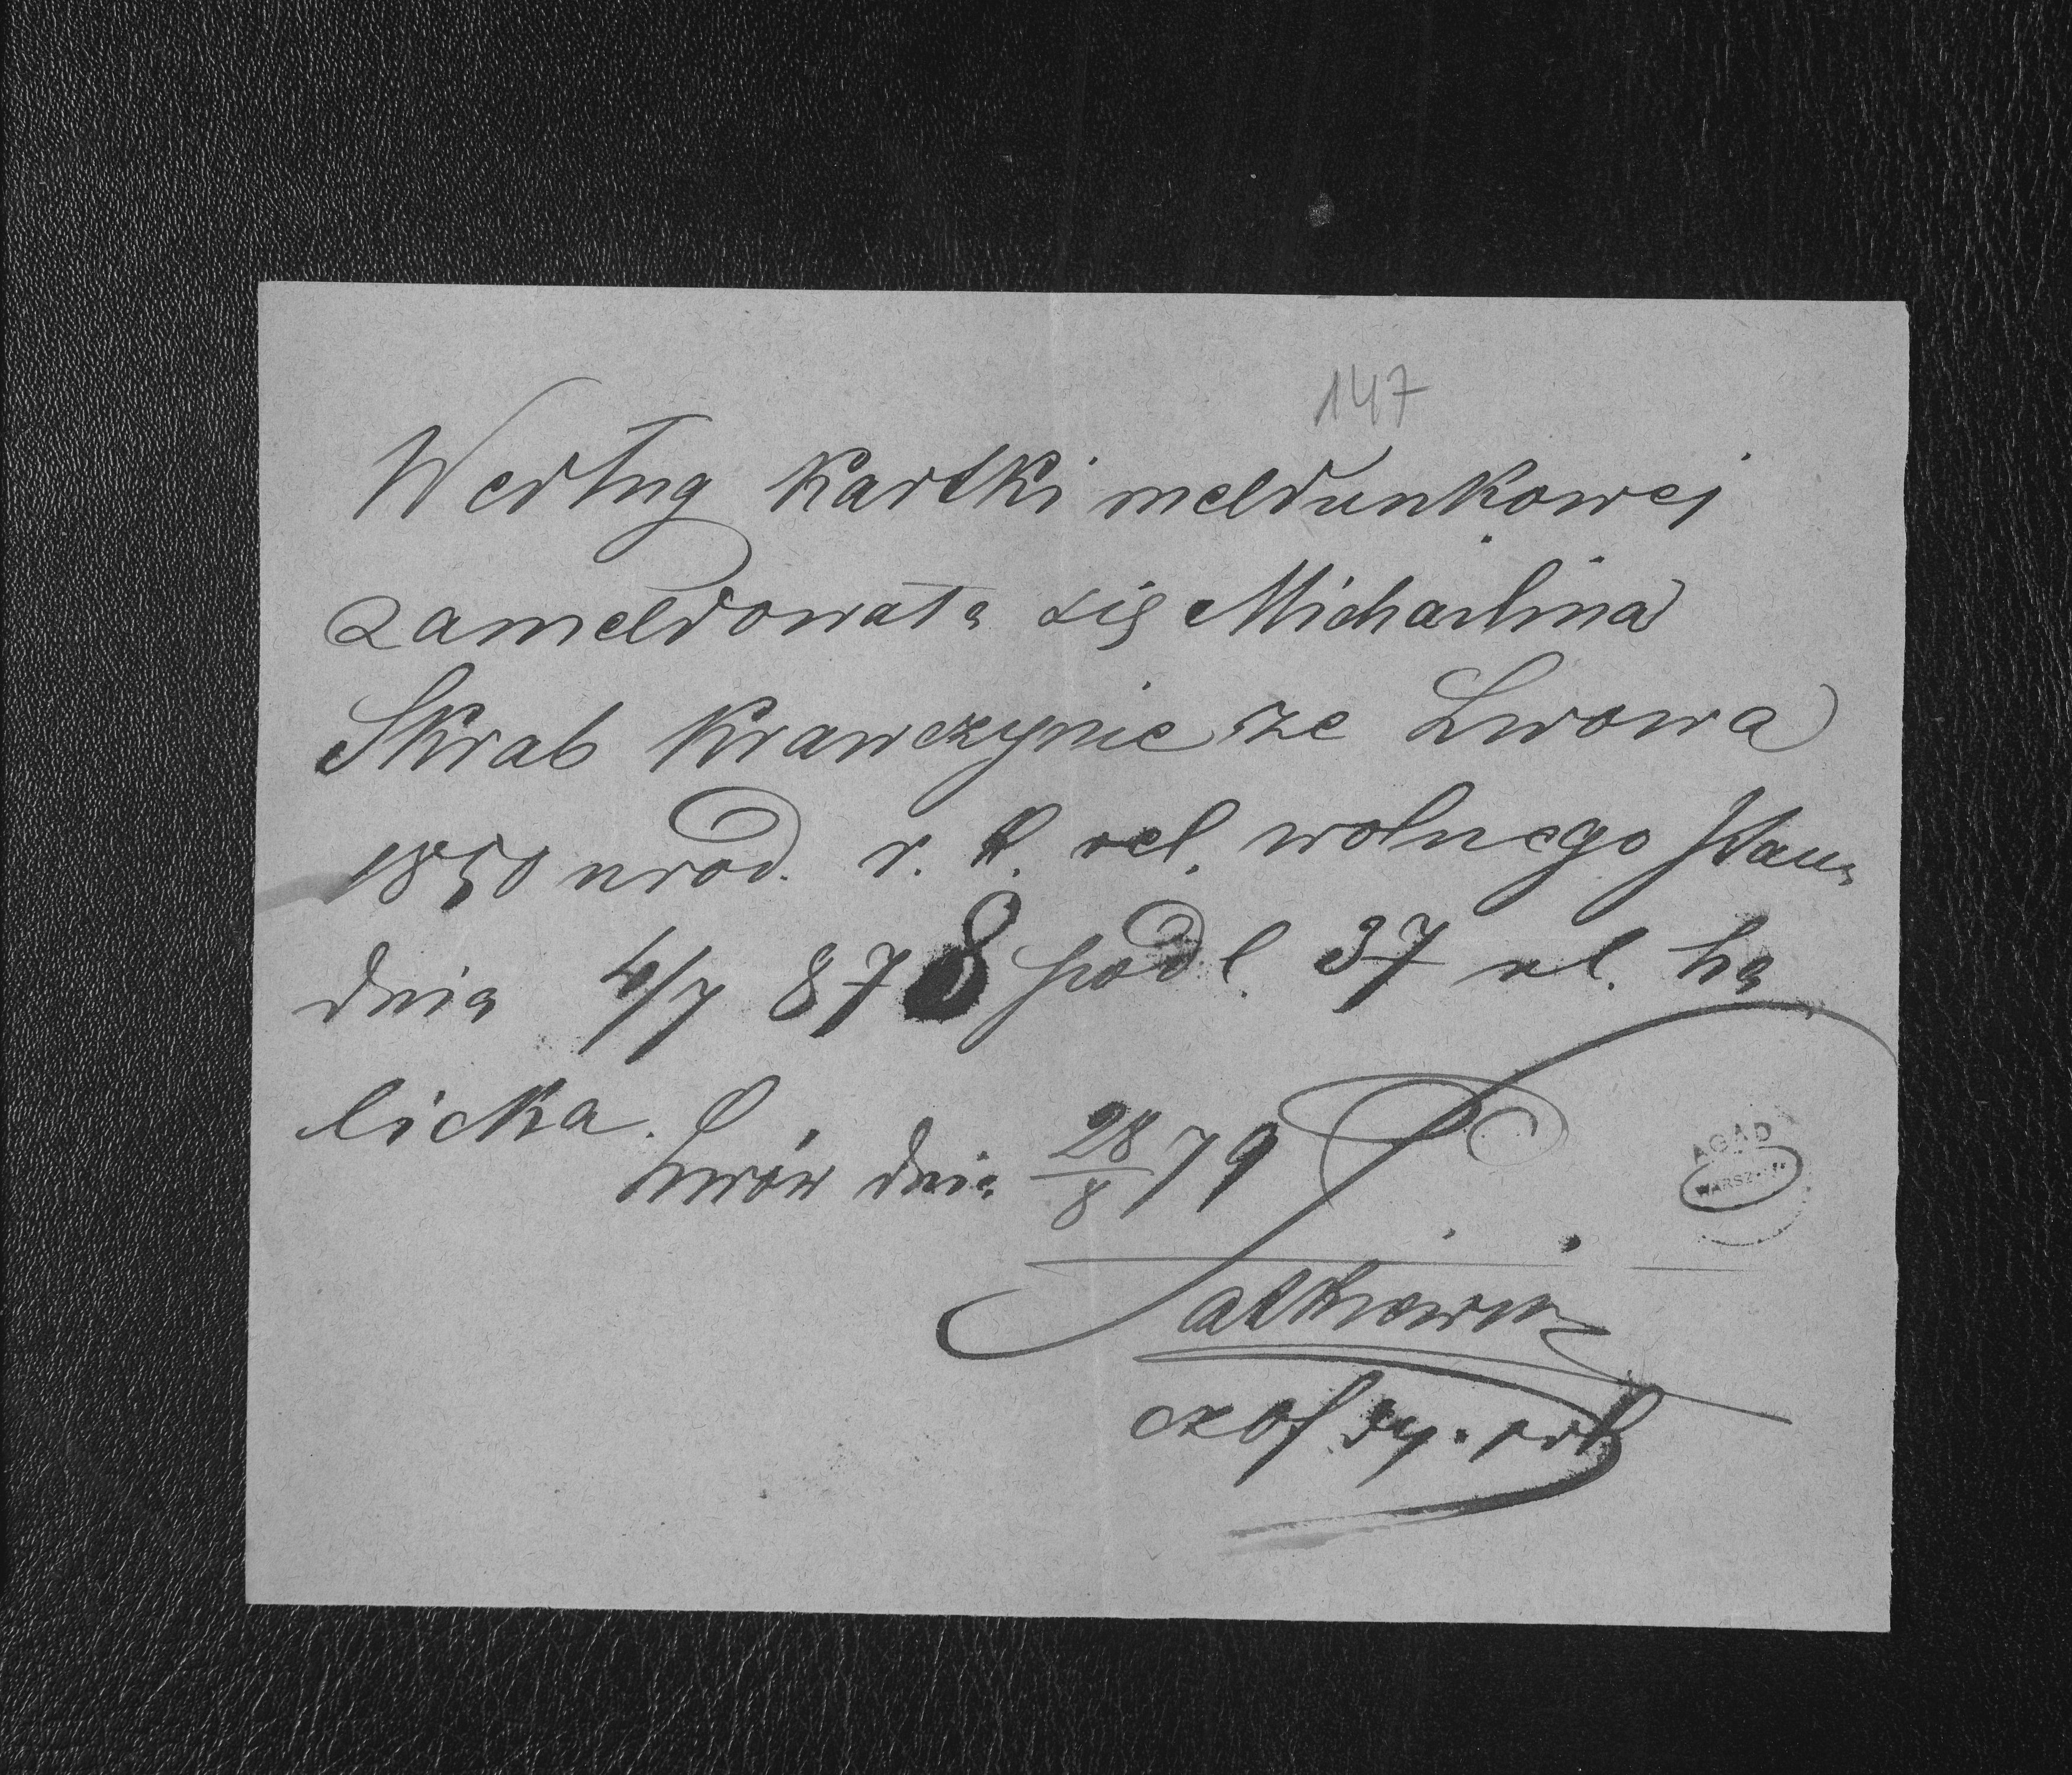 147
Według kartki meldunkowej
zameldowała się Michailina
Skrab Krawczynie ze Lwowa
1850 urod. r. k. rel. wolnego stanu
dnia 4/7 878 podl. 37 ul. ha
licka.
Lwów dnia 28/8 79
AGAD
WARSZAWA